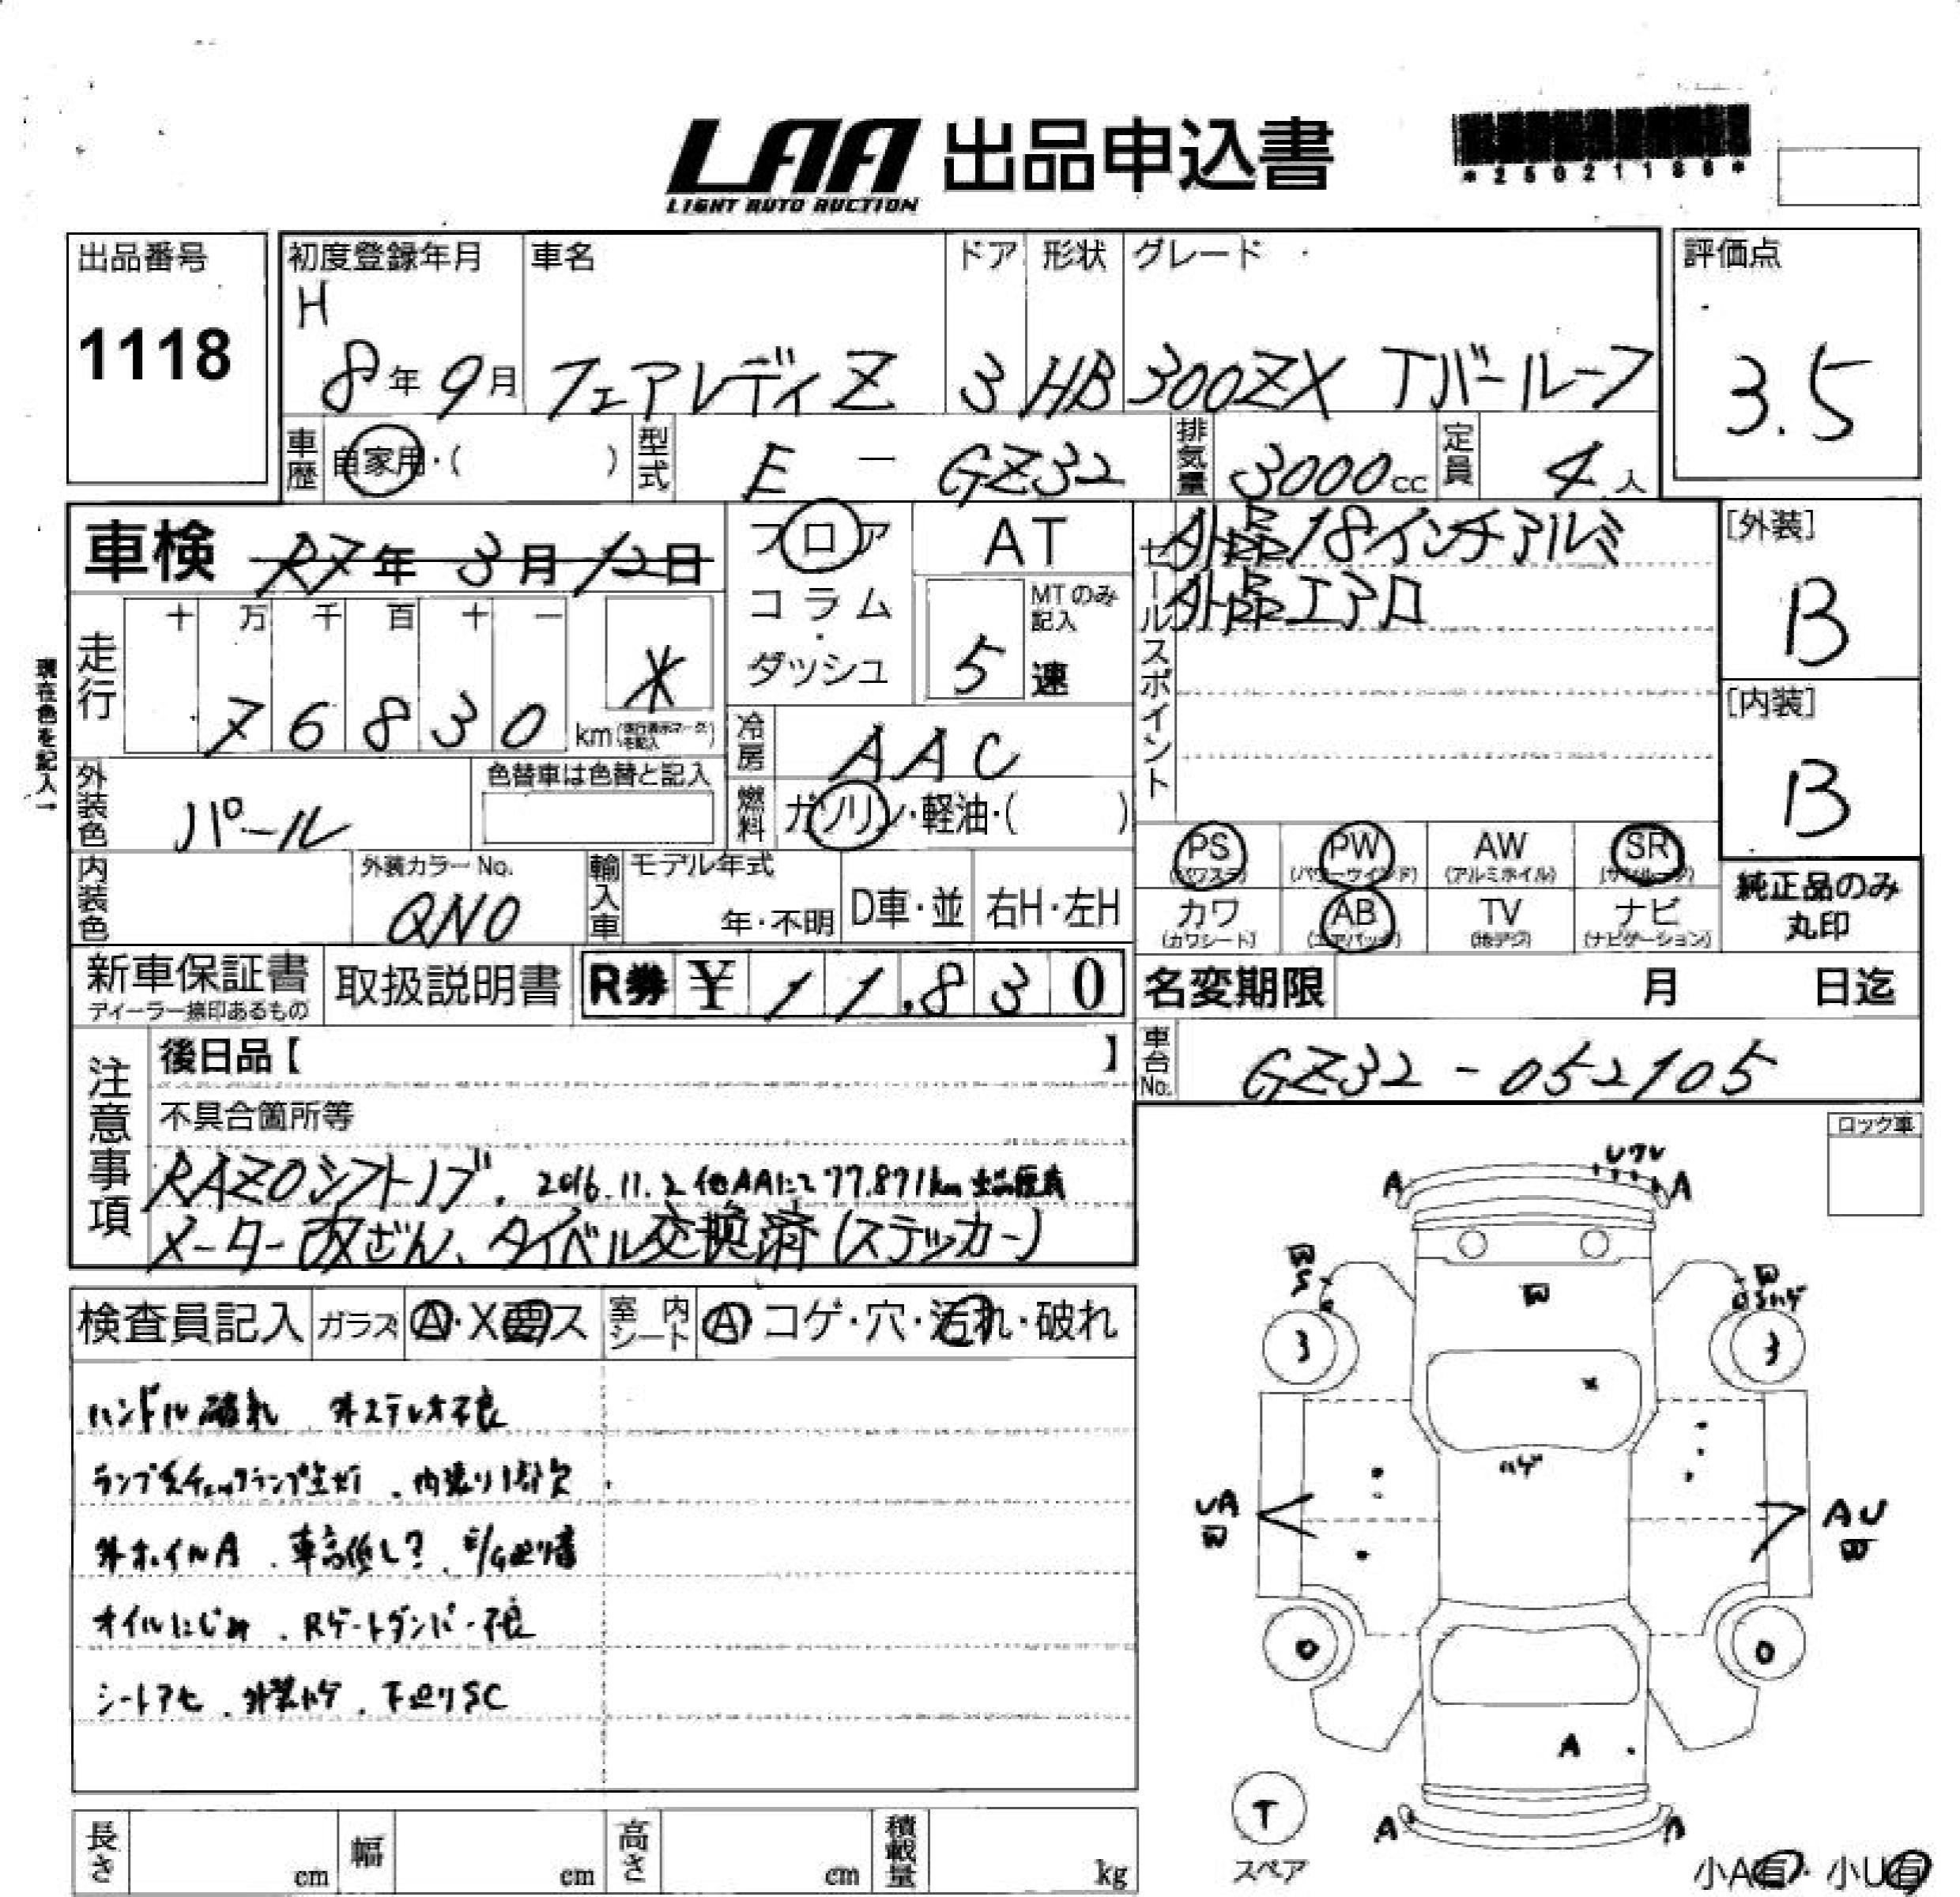 LAA 出品申込書
LIGHT AUTO AUCTION
*25021188*
出品番号
1118
初度登録年月 車名 ドア 形状 グレード
H
8年9月 フェアレディZ 3 HB 300ZX Tバールーフ
評価点
3.5
車歴 自家用・( ) 型式 E - GZ32 排気量 3000cc 定員 4人
車検 R7年3月12日
フロア
コラム
・
ダッシュ
AT
MTのみ記入
5速
セールスポイント
外品18インチアルミ
外品エアロ
[外装]
B
[内装]
B
走行
十 万 千 百 十 一
76830 km *
(走行表示マークを記入)
現在色を記入→
冷房 AAC
外装色 パール
色替車は色替と記入
燃料 ガソリン・軽油・( )
PS (パワステ) PW (パワーウインド) AW (アルミホイル) SR (サンルーフ)
カワ (カワシート) AB (エアバッグ) TV (地デジ) ナビ (ナビゲーション)
純正品のみ
丸印
内装色
外装カラーNo.
QN0
輸入車 モデル年式
年・不明 D車・並 右H・左H
新車保証書
ディーラー捺印あるもの
取扱説明書
R券 ¥11,830
名変期限 月 日迄
注意事項
後日品【 】
車台No. GZ32-052105
不具合箇所等
RAZOシフトノブ、2016.11.2 他AAにて77.871km 出品歴有
メーター改ざん、タイベル交換済(ステッカー)
ロック車
検査員記入 ガラス A・X要ス 室内シート A コゲ・穴・汚れ・破れ
ハンドル破れ 外ステレオ不良
内張り1部欠
外ホイルA、車高低し?、E/G廻り音
オイルにじみ、Rゲートダンパー不良
シートアセ、外装ハゲ、下廻りSC
A ワレ A
W S
W
W ハゲ
3 3
×
ハゲ
UA W
AU W
0 0
A
T
スペア
A A
小A有・小U有
長さ cm 幅 cm 高さ cm 積載量 kg